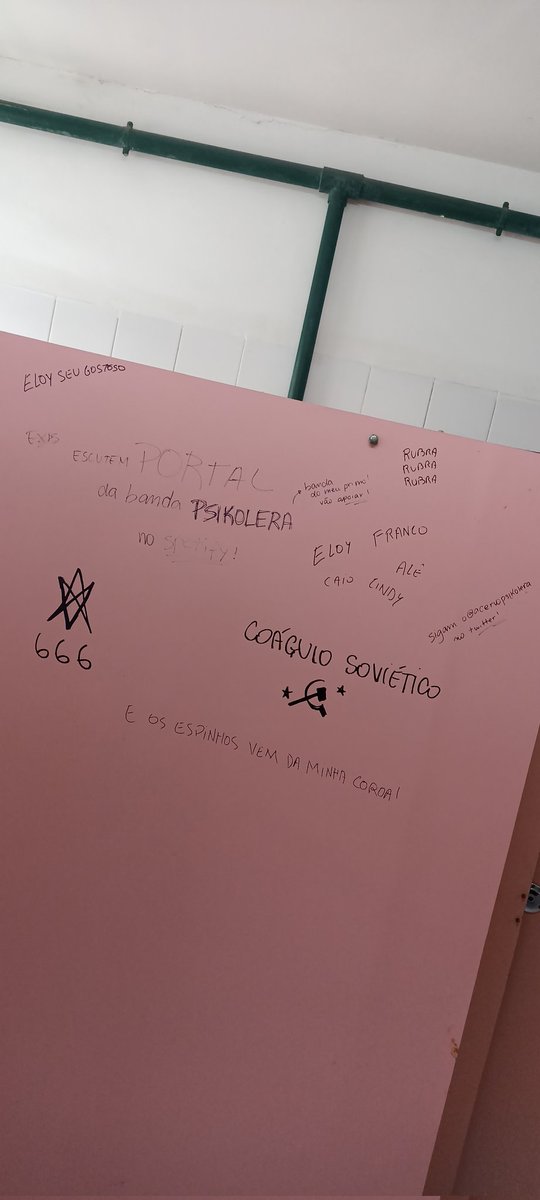 ELOY SEU GOSTOSO
ESCUTEM PORTAL
da banda PSIKOLERA
no SPOTIFY!
banda
do meu primo!
vão apoiar!
RUBRA
RUBRA
RUBRA
ELOY FRANCO
ALÊ
CAIO CINDY
sigam o @acervopsikolera
no twitter!
666
COÁGULO SOVIÉTICO
E OS ESPINHOS VEM DA MINHA COROA!